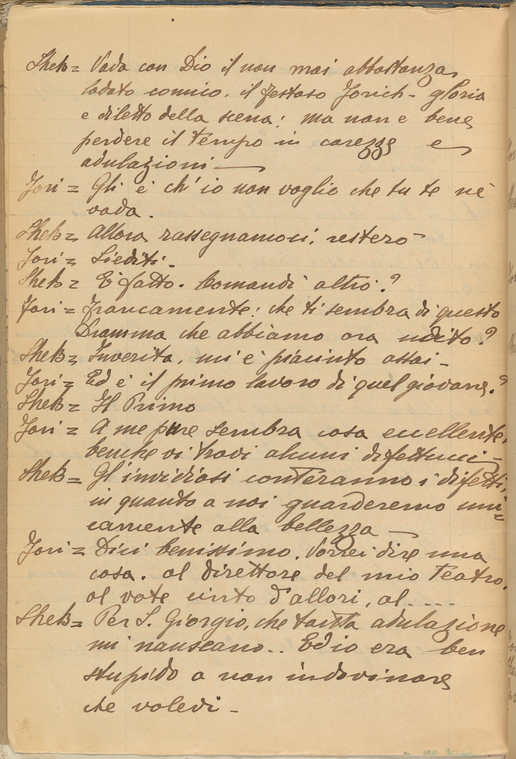 Sheks = Vada con Dio il non mai abbastanza
lodato comico. il festoso Jorich - gloria
e diletto della scena: ma non e bene
perdere il tempo in carezze e
adulazioni -
Jori = Gli è ch'io non voglio che tu te ne
vada.
Sheks = Allora rassegnamoci, resterò
Jori = Siediti -
Sheks = E' fatto. Comandi altro?
Jori = Francamente: che ti sembra di questo
Dramma che abbiamo ora udito?
Sheks = Inverità, mi è piaciuto assai -
Jori = Ed è il primo lavoro di quel giovane?
Sheks = Il Primo
Jori = A me pure sembra cosa eccellente,
benche vi trovi alcuni difettucci -
Sheks = Gl'invidiosi conteranno i difetti,
in quanto a noi guarderemo uni=
camente alla bellezza -
Jori = Dici benissimo. Vorrei dire una
cosa. al direttore del mio Teatro,
al vate cinto d'allori, al .....
Sheks = Per S. Giorgio, che tanta adulazione
mi nauseano.. Ed io era ben
stupido a non indovinare
che voledi -